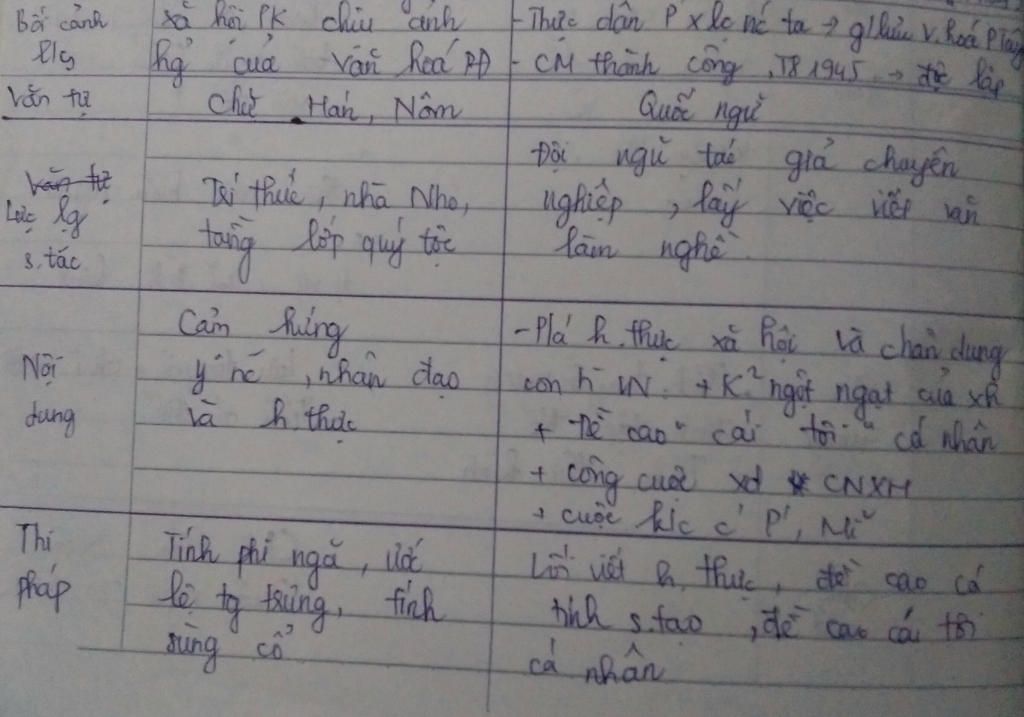 Bối cảnh
l/s
xã hội PK chịu ảnh
hg của văn hoá PĐ
- Thực dân P x lc nc ta → g/lưu v.hoá P Tây
- CM thành công T8 1945 → độc lập
Văn tự
Chữ Hán, Nôm
Quốc ngữ
Văn tự
Lực lg
s.tác
Trí thức, nhà Nho,
tầng lớp quý tộc
Đội ngũ tác giả chuyên
nghiệp, lấy việc viết văn
làm nghề
Nội
dung
Cảm hứng
y nc, nhân đạo
và h.thực
- P/á h.thực xã hội và chân dung
con ng VN. + K² ngột ngạt của xh
+ Đề cao "cái tôi" cá nhân
+ công cuộc xd CNXH
+ cuộc k/c c' P', Mĩ
Thi
pháp
Tính phi ngã, ước
lệ tg trưng, tính
sùng cổ
Lối viết h.thực, đề cao cá
tính s.tạo, đề cao cái tôi
cá nhân